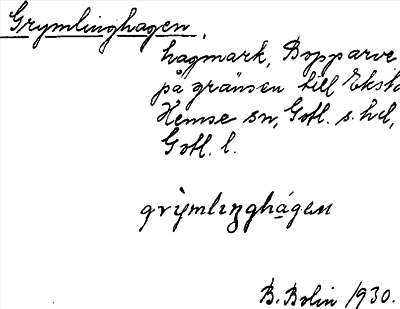 Grymlinghagen,
hagmark, Bopparve
på gränsen till
Hemse sn, Gotl. s. hd,
Gotl. l.
grỳmlınghágen
B. Bolin 1930.